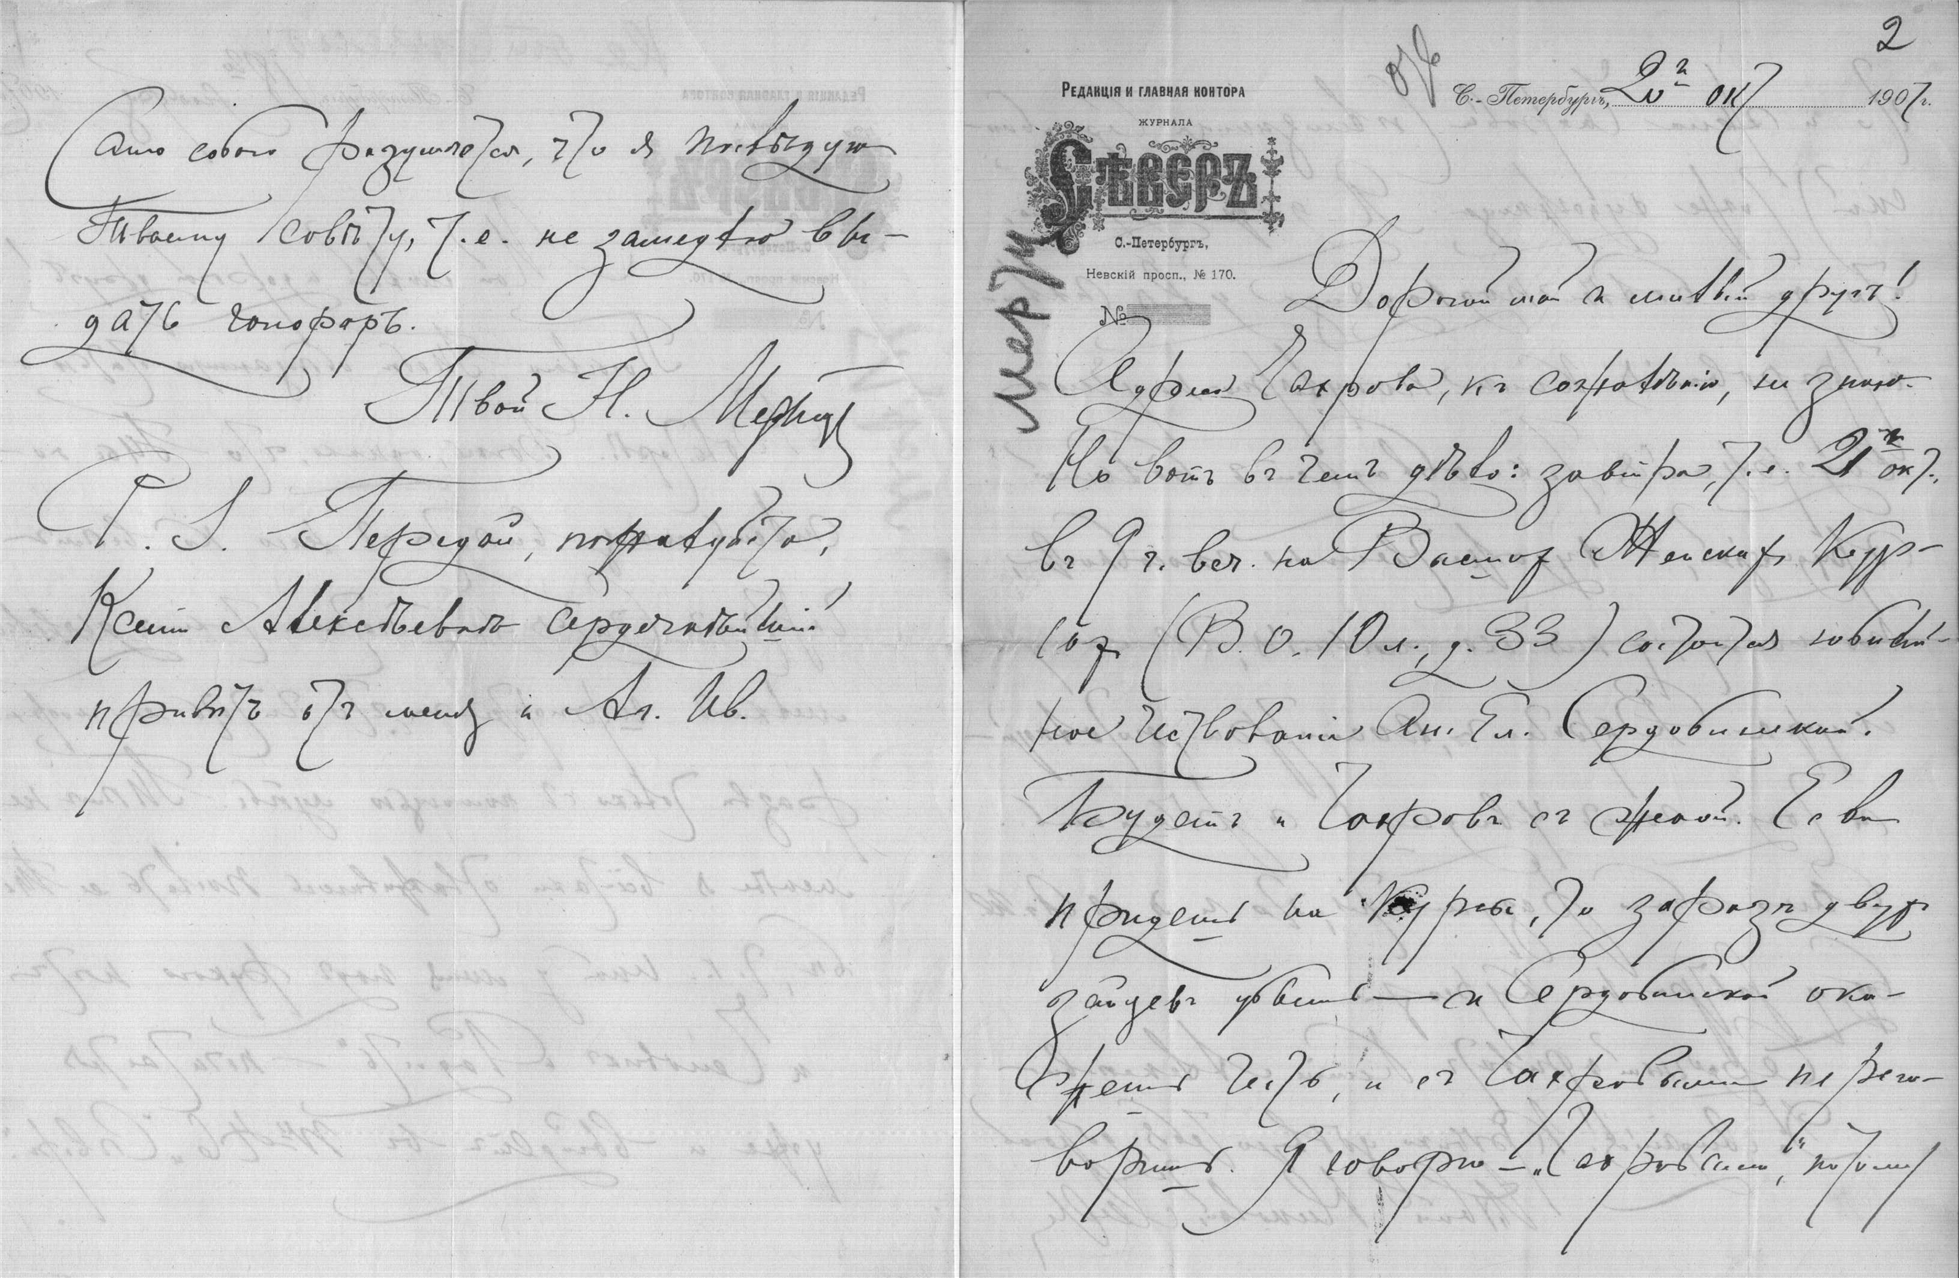 Само собою разумѣется, что я послѣдую
Твоему совѣту, т.е. не замедлю вы-
дать гонораръ.
Твой Н. Мертцъ
P. S. Передай, пожалуйста,
Ксеніи Алексѣевнѣ сердечнѣйшій
привѣтъ отъ меня и Ал. Ив.
2
Редакція и главная контора
журнала
Сѣверъ
С.-Петербургъ,
Невскій просп., № 170.
№
С.-Петербургъ, 20го окт 1907 г.
Мертц
Дорогой мой и милый другъ!
Адреса Чахрова, къ сожалѣнію, не знаю.
Но вотъ въ чемъ дѣло: завтра, т.е. 21го окт.,
въ 9 ч. веч. на Высших Женских Кур-
сах (В. О. 10 л., д. 33) состоится юбилей-
ное чествованіе Ан. Ел. Сердобинской.
Будетъ и Чахровъ съ женой. Если
придешь на Курсы, то заразъ двух
зайцевъ убьешь — и Сердобинской ока-
жешь честь, и съ Чахровыми перего-
воришь. Я говорю — „Чахровыми“, потому